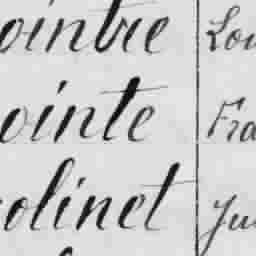 ointre Lou
ointe Fra
olinet Ju